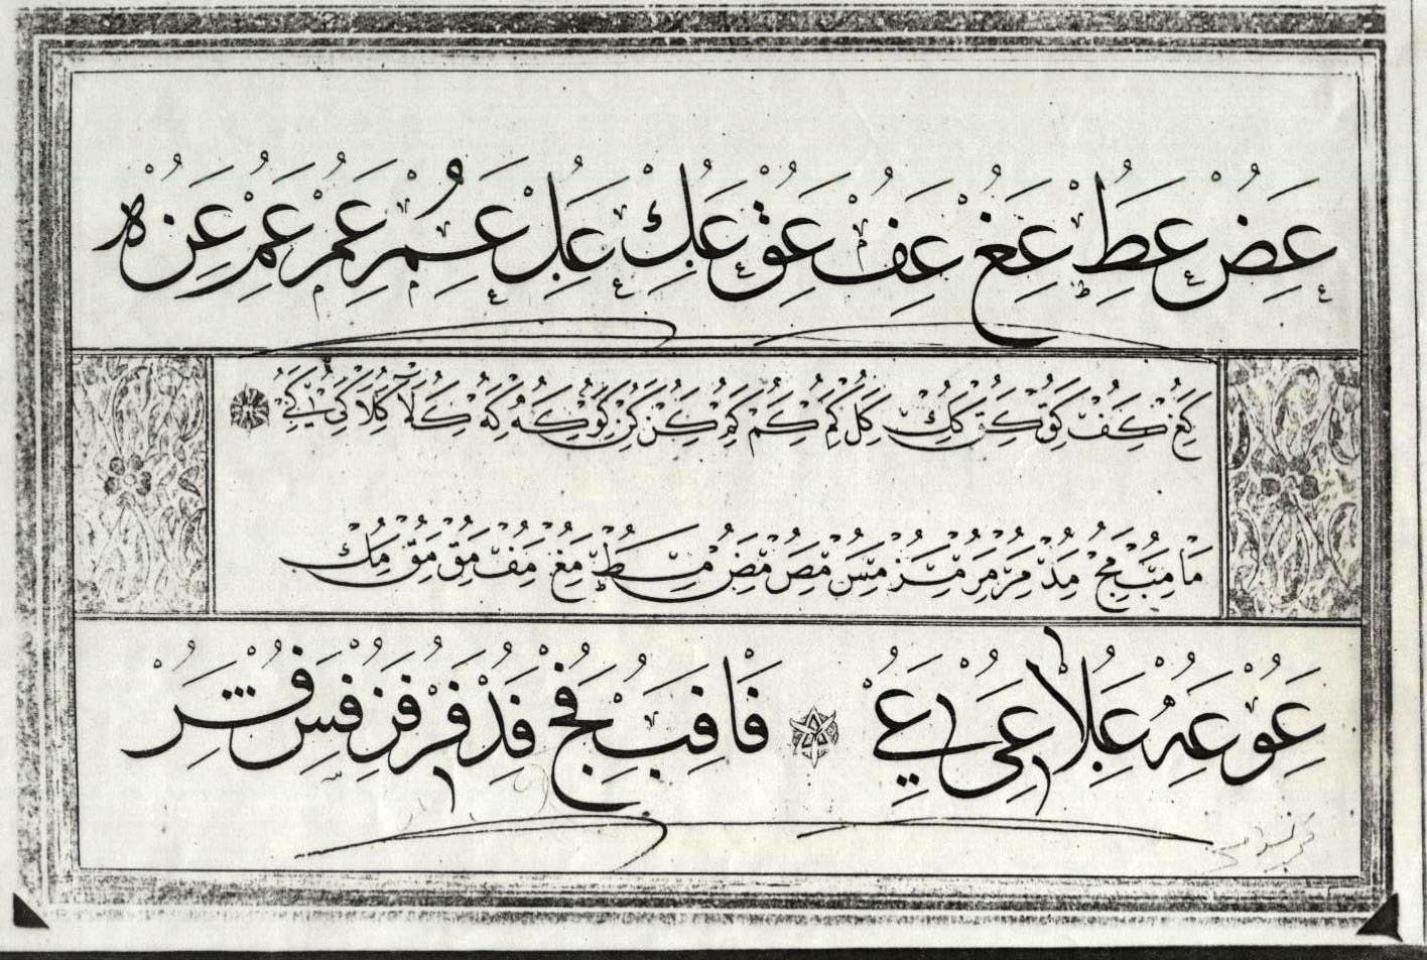 عض عط عغ عف عق عك عل عم عم عم عن ه
كغ كف كق كق كك كل كم كم كم كن كن كو كه كه كلا كلا كى كے
ما مب مج مد مر مر مز مس مص مض مط مغ مف مق مق مك
عو عه علا عى عے فا فب فج فد فر فز فس فشر